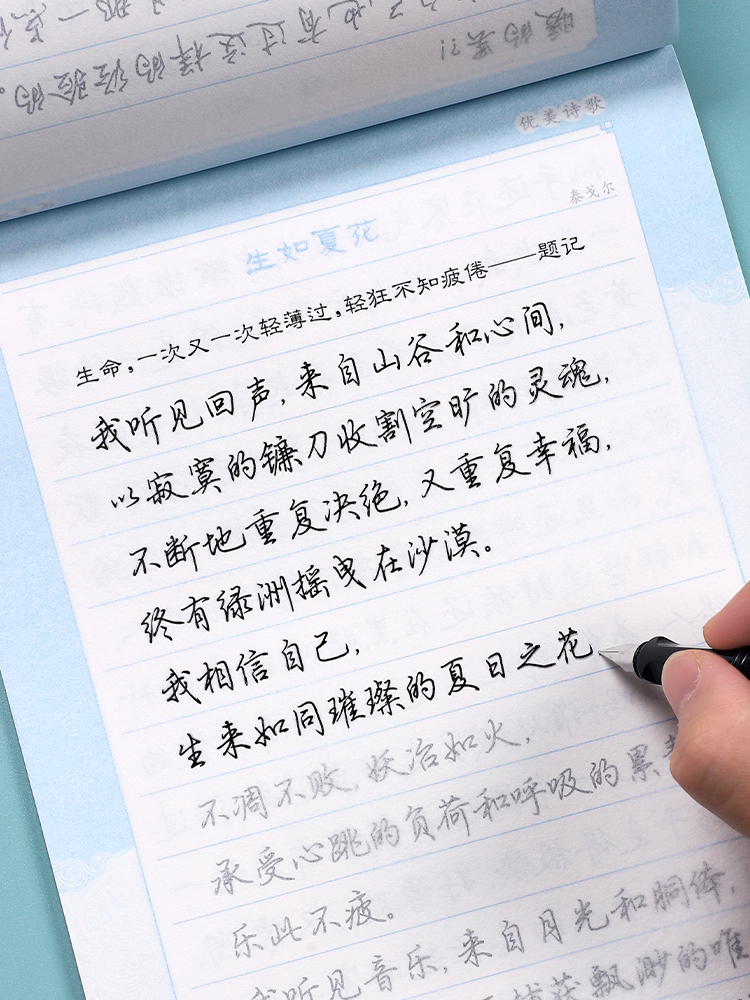 暖的美?!
也有过这样的经验的。
优美诗歌
泰戈尔
生如夏花
生命，一次又一次轻薄过，轻狂不知疲倦——题记
我听见回声，来自山谷和心间，
以寂寞的镰刀收割空旷的灵魂，
不断地重复决绝，又重复幸福，
终有绿洲摇曳在沙漠。
我相信自己，
生来如同璀璨的夏日之花
不凋不败，妖冶如火，
承受心跳的负荷和呼吸的累
乐此不疲。
我听见音乐，来自月光和胴体，
飘渺的唯